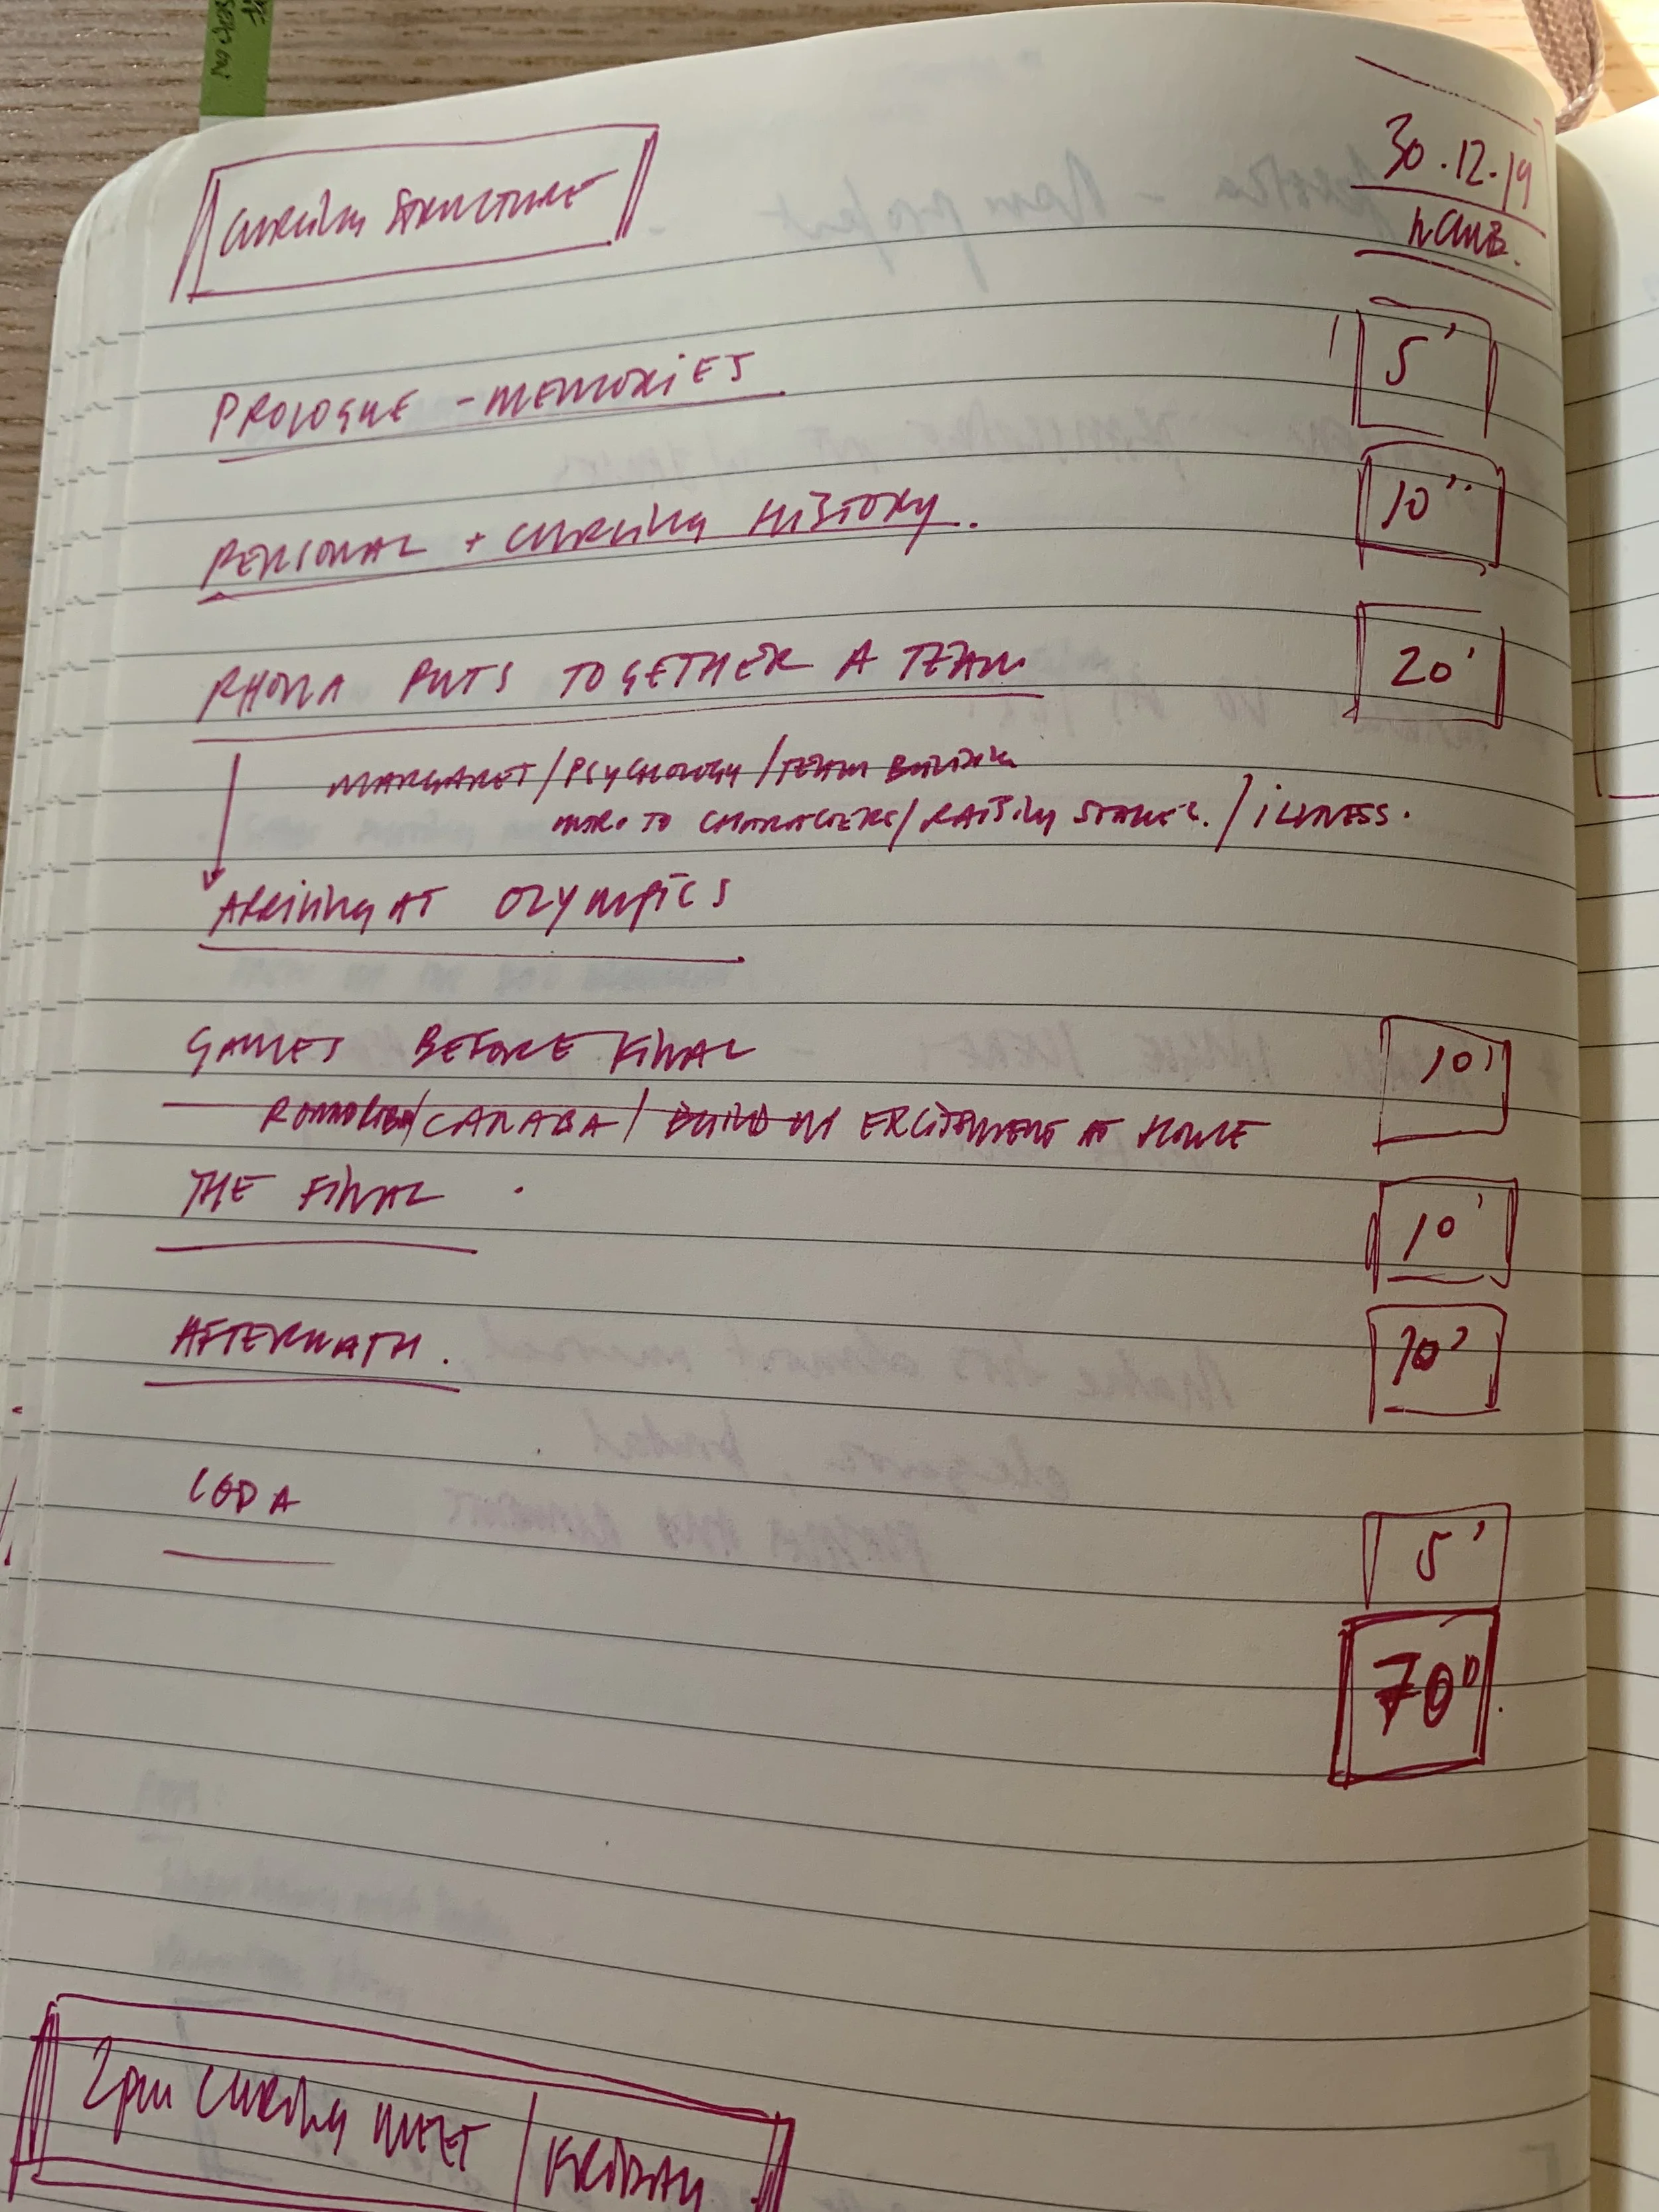 CURLING STRUCTURE
30.12.19
PROLOGUE - MEMORIES
5'
PERSONAL + CURLING HISTORY.
10''
RHONA PUTS TOGETHER A TEAM
20'
MARGARET/PSYCHOLOGY/TEAM BUILDING
INTRO TO CHARACTERS/RAISING STAKES./ILLNESS.
ARRIVING AT OLYMPICS
GAMES BEFORE FINAL
10'
/CANADA/ BUILD IN EXCITEMENT AT HOME
THE FINAL
10'
AFTERMATH.
10'
CODA
5'
70"
2pm CURLING MEET / FRIDAY